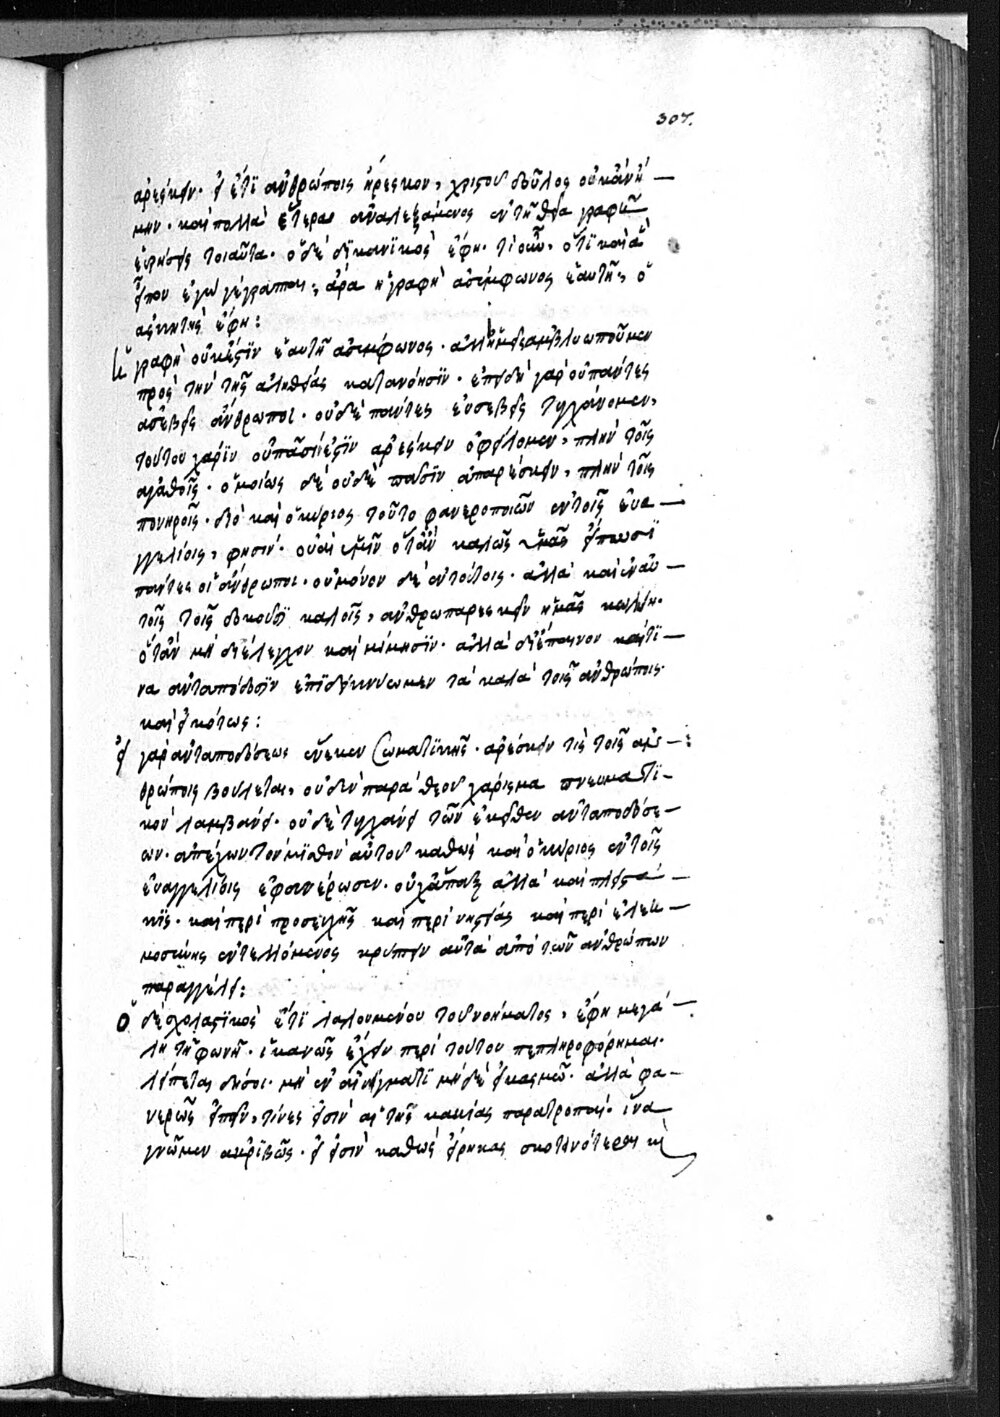 307.
ἀρέσκειν. εἰ ἔτι ἀνθρώποις ἤρεσκον, χριστοῦ δοῦλος οὐκ ἂν ἤ—
μην. καὶ πολλὰ ἕτερα ἀναλεξάμενος ἐν τῇ θεία γραφῇ
εὑρήσεις τοιαῦτα. ὁ δὲ δικανικὸς ἔφη. τί οὖν, ὅτι καὶ ἃ
εἶπον ἐγὼ γέγραπται, ἄρα ἡ γραφὴ ἀσύμφωνος ἑαυτῆς, ὁ
ἀσκητὴς ἔφη:
ἡ γραφὴ οὐκ ἔστιν ἑαυτῇ ἀσύμφωνος. ἀλλ' ἡμεῖς ἀμβλυωποῦμεν
πρὸς τὴν τῆς ἀληθείας κατανόησιν. ἐπειδὴ γὰρ οὐ πάντες
ἀσεβεῖς ἄνθρωποι. οὐδὲ πάντες εὐσεβεῖς τυγχάνομεν,
τούτου χάριν οὐ πᾶσιν ἀρέσκειν ὀφείλομεν, πλὴν τοῖς
ἀγαθοῖς. ὁμοίως δὲ οὐδὲ πᾶσιν ἀπαρέσκειν, πλὴν τοῖς
πονηροῖς. διὸ καὶ ὁ κύριος τοῦτο φανεροποιῶν ἐν τοῖς εὐα—
γγελίοις, φησίν. οὐαὶ ὑμῖν ὅταν καλῶς ὑμᾶς εἴπωσι
πάντες οἱ ἄνθρωποι. οὐ μόνον δὲ ἐν τούτοις. ἀλλὰ καὶ ἐν αὐ—
τοῖς τοῖς δοκοῦσι καλοῖς, ἀνθρωπαρεσκεῖν ἡμᾶς κωλύει.
ὅταν μὴ δι' ἔλεγχον καὶ μίμησιν. ἀλλὰ δι' ἔπαινον καί τι—
να ἀνταπόδοσιν ἐπιδεικνύωμεν τὰ καλὰ τοῖς ἀνθρώποις.
καὶ εἰκότως:
εἰ γὰρ ἀνταποδόσεως ἕνεκεν σωματικῆς. ἀρέσκειν τις τοῖς ἀν—
θρώποις βούλεται, οὐδὲν παρὰ θεοῦ χάρισμα πνευματι—
κὸν λαμβάνει. οὐδὲ τυγχάνει τῶν ἐκεῖθεν ἀνταποδόσε—
ων. ἀπέχων τὸν μισθὸν αὐτοῦ καθὼς καὶ ὁ κύριος ἐν τοῖς
εὐαγγελίοις ἐφανέρωσεν. οὐχ ἅπαξ ἀλλὰ καὶ πλειστά—
κις. καὶ περὶ προσευχῆς καὶ περὶ νηστείας καὶ περὶ ἐλεη—
μοσύνης ἐντελλόμενος κρύπτειν αὐτὰ ἀπὸ τῶν ἀνθρώπων
παραγγέλει:
ὁ δὲ σχολαστικὸς ἔτι λαλουμένου τοῦ νοήματος, ἔφη μεγά—
λη τῇ φωνῇ. ἱκανῶς ἔχειν περὶ τούτου πεπληροφόρημαι.
λείπεται δέ σοι. μὴ ἐν αἰνίγματι μηδὲ εἰκασμῶ. ἀλλὰ φα—
νερῶς εἰπεῖν, τίνες εἰσὶν αἱ τῆς κακίας παρατροπαί. ἵνα
γνῶμεν ἀκριβῶς. εἰ εἰσὶν καθὼς εἴρηκας σκοτεινότεραι καὶ